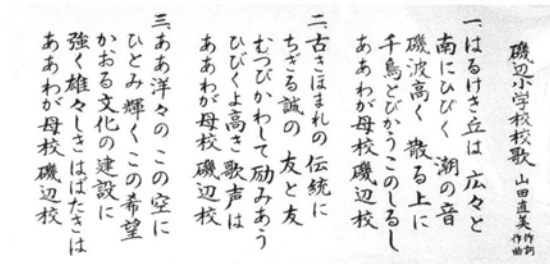 磯辺小学校校歌 山田直美 作詞作曲
一、はるけき丘は 広々と
南にひびく 潮の音
磯波高く 散る上に
千鳥とびかうこのしるし
ああわが母校 磯辺校
二、古きほまれの 伝統に
ちぎる誠の 友と友
むつびかわして励みあう
ひびくよ高き歌声は
ああわが母校 磯辺校
三、ああ洋々の この空に
ひとみ輝く この希望
かおる文化の建設に
強く雄々しきはばたきは
ああわが母校 磯辺校